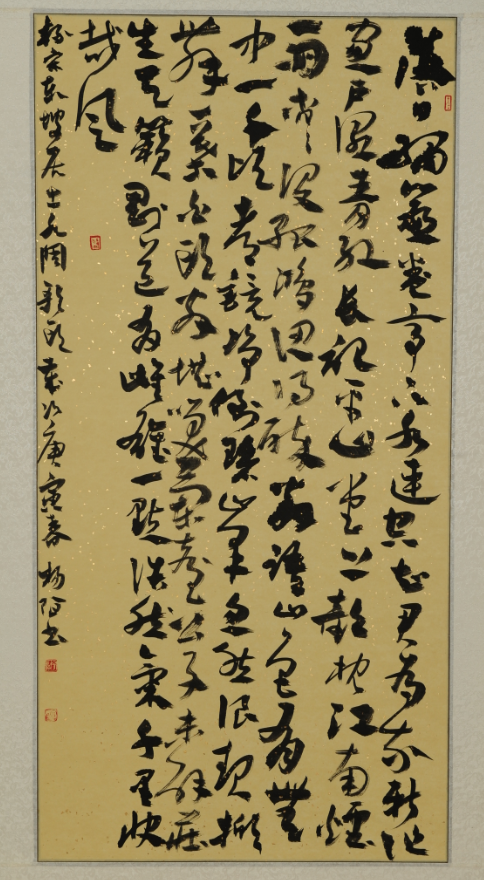 落日繡簾卷亭下水連空知君為我新作
窗戶濕青紅長記平山堂上欹枕江南煙
雨渺渺沒孤鴻認得醉翁語山色有無
中一千頃都鏡淨倒碧峯忽然浪起掀
舞一葉白頭翁堪笑蘭臺公子未解莊
生天籟剛道有雌雄一點浩然氣千里快
哉風
宋東坡居士水調歌頭歲次庚寅春楊書